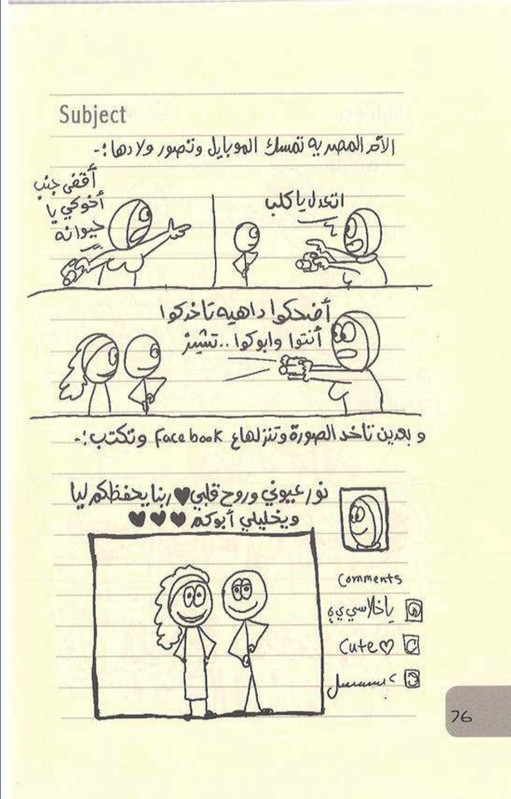 Subject
الأم المصرية تمسك الموبايل وتصور ولادها :-
اتعدل يا كلب
أقفى جنب
أخوكي يا
حيوانه
أضحكوا داهيه تاخدكوا
أنتوا وابوكوا .. تشييز
وبعدين تاخد الصورة وتنزلها ع Facebook وتكتب :-
نور عيوني وروح قلبي ♥ ربنا يحفظكم ليا
ويخليلي أبوكم ♥ ♥ ♥
Comments
يا خلاسيييي
Cute ♡
76